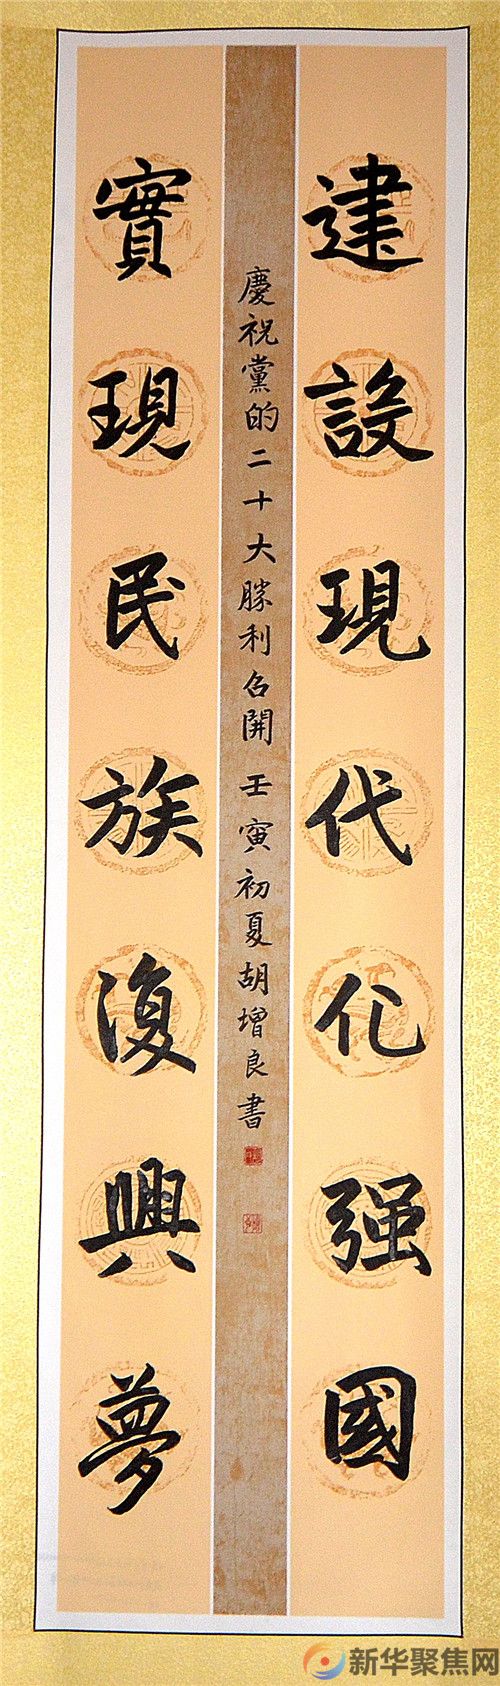 建設現代化强國
慶祝黨的二十大勝利召開 壬寅初夏胡增良書
實現民族復興夢
新华聚焦网